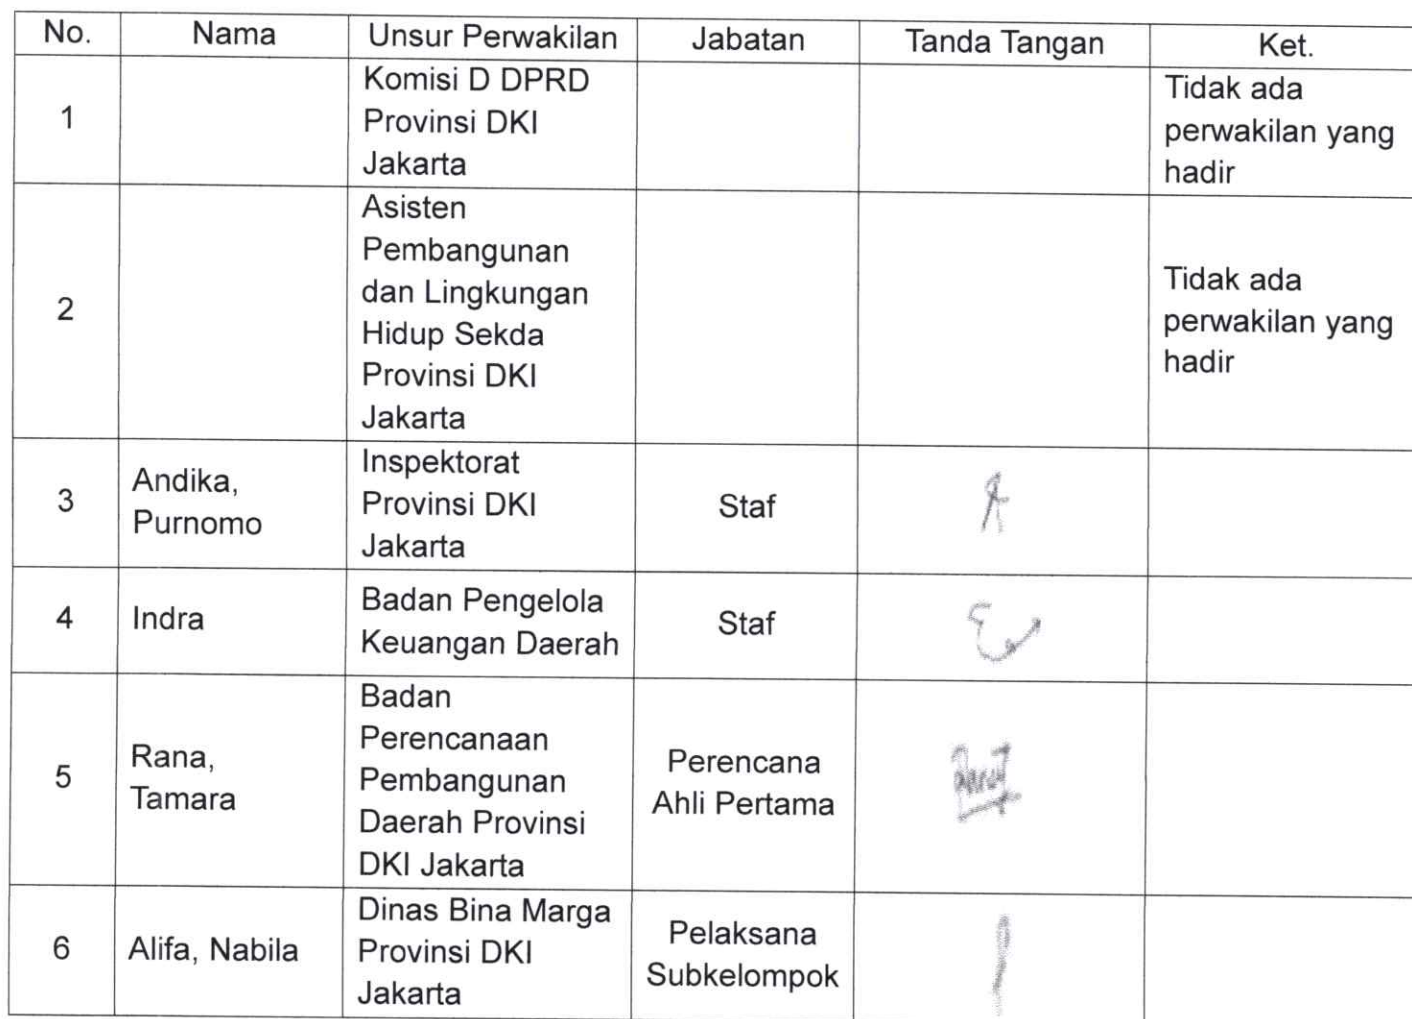 No. Nama Unsur Perwakilan Jabatan Tanda Tangan Ket.
1
Komisi D DPRD
Provinsi DKI
Jakarta
Tidak ada
perwakilan yang
hadir
2
Asisten
Pembangunan
dan Lingkungan
Hidup Sekda
Provinsi DKI
Jakarta
Tidak ada
perwakilan yang
hadir
3
Andika,
Purnomo
Inspektorat
Provinsi DKI
Jakarta
Staf
4
Indra
Badan Pengelola
Keuangan Daerah
Staf
5
Rana,
Tamara
Badan
Perencanaan
Pembangunan
Daerah Provinsi
DKI Jakarta
Perencana
Ahli Pertama
6
Alifa, Nabila
Dinas Bina Marga
Provinsi DKI
Jakarta
Pelaksana
Subkelompok